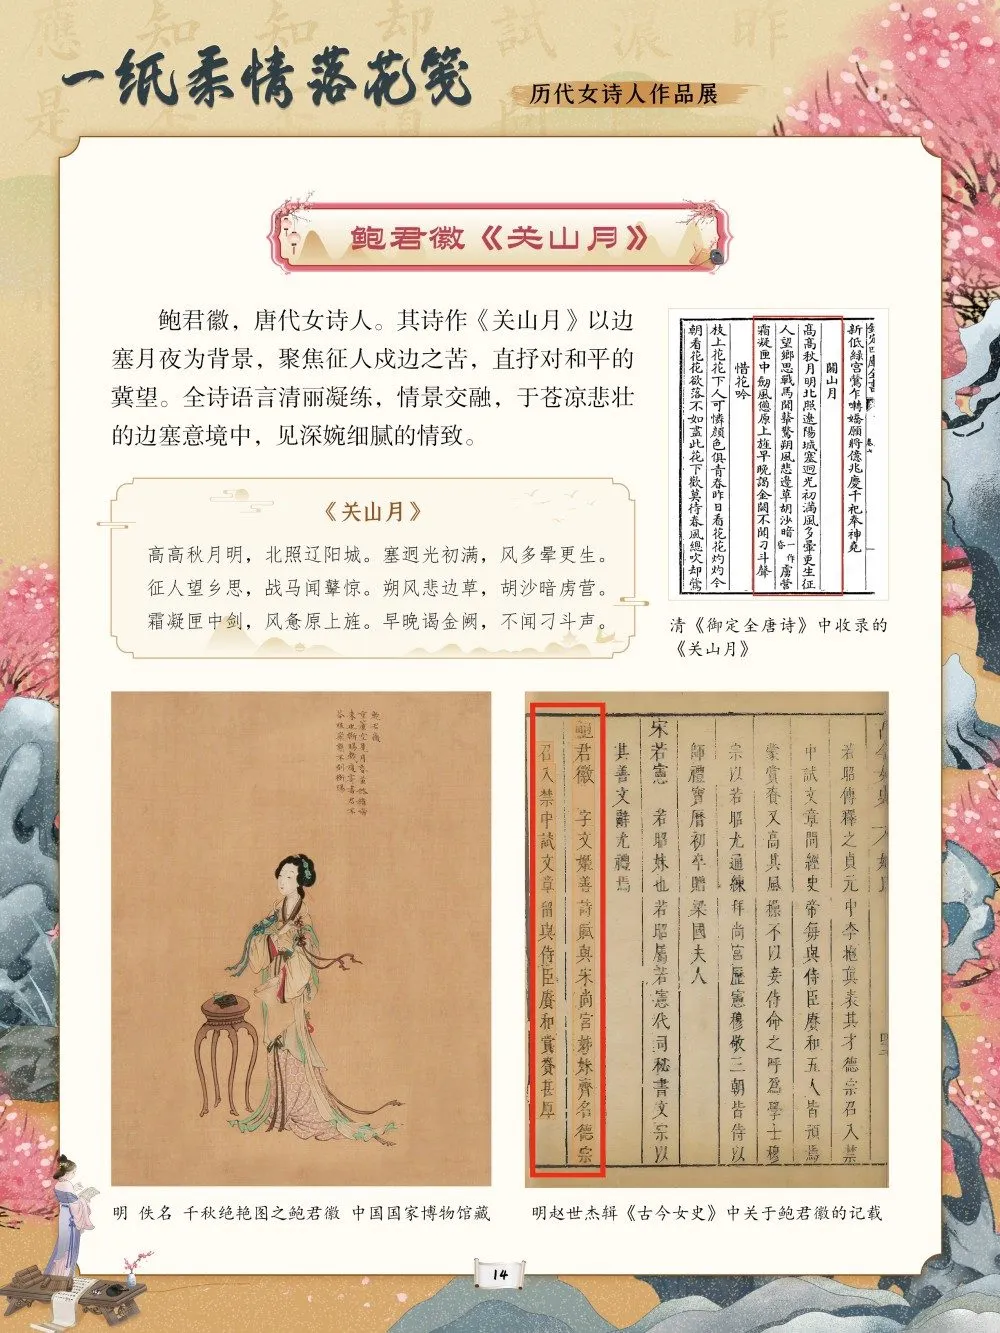 一纸柔情落花笺
历代女诗人作品展
鲍君徽《关山月》
鲍君徽，唐代女诗人。其诗作《关山月》以边
塞月夜为背景，聚焦征人戍边之苦，直抒对和平的
冀望。全诗语言清丽凝练，情景交融，于苍凉悲壮
的边塞意境中，见深婉细腻的情致。
《关山月》
高高秋月明，北照辽阳城。塞迥光初满，风多晕更生。
征人望乡思，战马闻鼙惊。朔风悲边草，胡沙暗虏营。
霜凝匣中剑，风惫原上旌。早晚谒金阙，不闻刁斗声。
新低綠宮鶯乍囀嬌願將億兆慶千祀奉神堯
關山月
高高秋月明北照遼陽城塞迥光初滿風多暈更生征
人望鄉思戰馬聞鼙驚朔風悲邊草胡沙暗一作昏虜營
霜凝匣中劒風憊原上旌早晚謁金闕不聞刁斗聲
惜花吟
枝上花花下人可憐顏色俱青春昨日看花花灼灼今
朝看花花欲落不如盡此花下歎莫待春風總吹却鶯
清《御定全唐诗》中收录的
《关山月》
鮑君徽
若昭傳釋之貞元中李抱真表其才德宗召入禁
中試文章問經史帝每與侍臣賡和五人皆預焉
蒙賞賚又高其風操不以妾侍命之呼爲學士穆
宗以若昭尤通練拜尚宮歷憲穆敬三朝皆侍以
師禮寶曆初卒贈梁國夫人
宋若憲 若昭妹也若昭屬若憲代司秘書文宗以
其善文辭尤禮焉
鮑君徽 字文姬善詩賦與宋尚宮姊妹齊名德宗
召入禁中試文章留與侍臣賡和賞賚甚厚
明 佚名 千秋绝艳图之鲍君徽 中国国家博物馆藏
明赵世杰辑《古今女史》中关于鲍君徽的记载
14